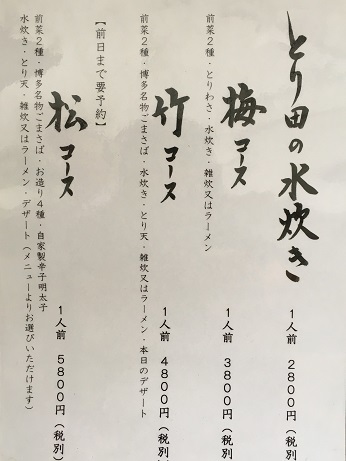 とり田の水炊き
1人前 2800円(税別
梅コース
1人前 3800円(税別
前菜2種・とりわさ・水炊き・雑炊又はラーメン
竹コース
1人前 4800円(税別
前菜2種・博多名物ごまさば・水炊き・とり天・雑炊又はラーメン・本日のデザート
【前日まで要予約】
松コース
1人前 5800円(税別)
前菜2種・博多名物ごまさば・お造り4種・自家製辛子明太子
水炊き・とり天・雑炊又はラーメン・デザート(メニューよりお選びいただけます)